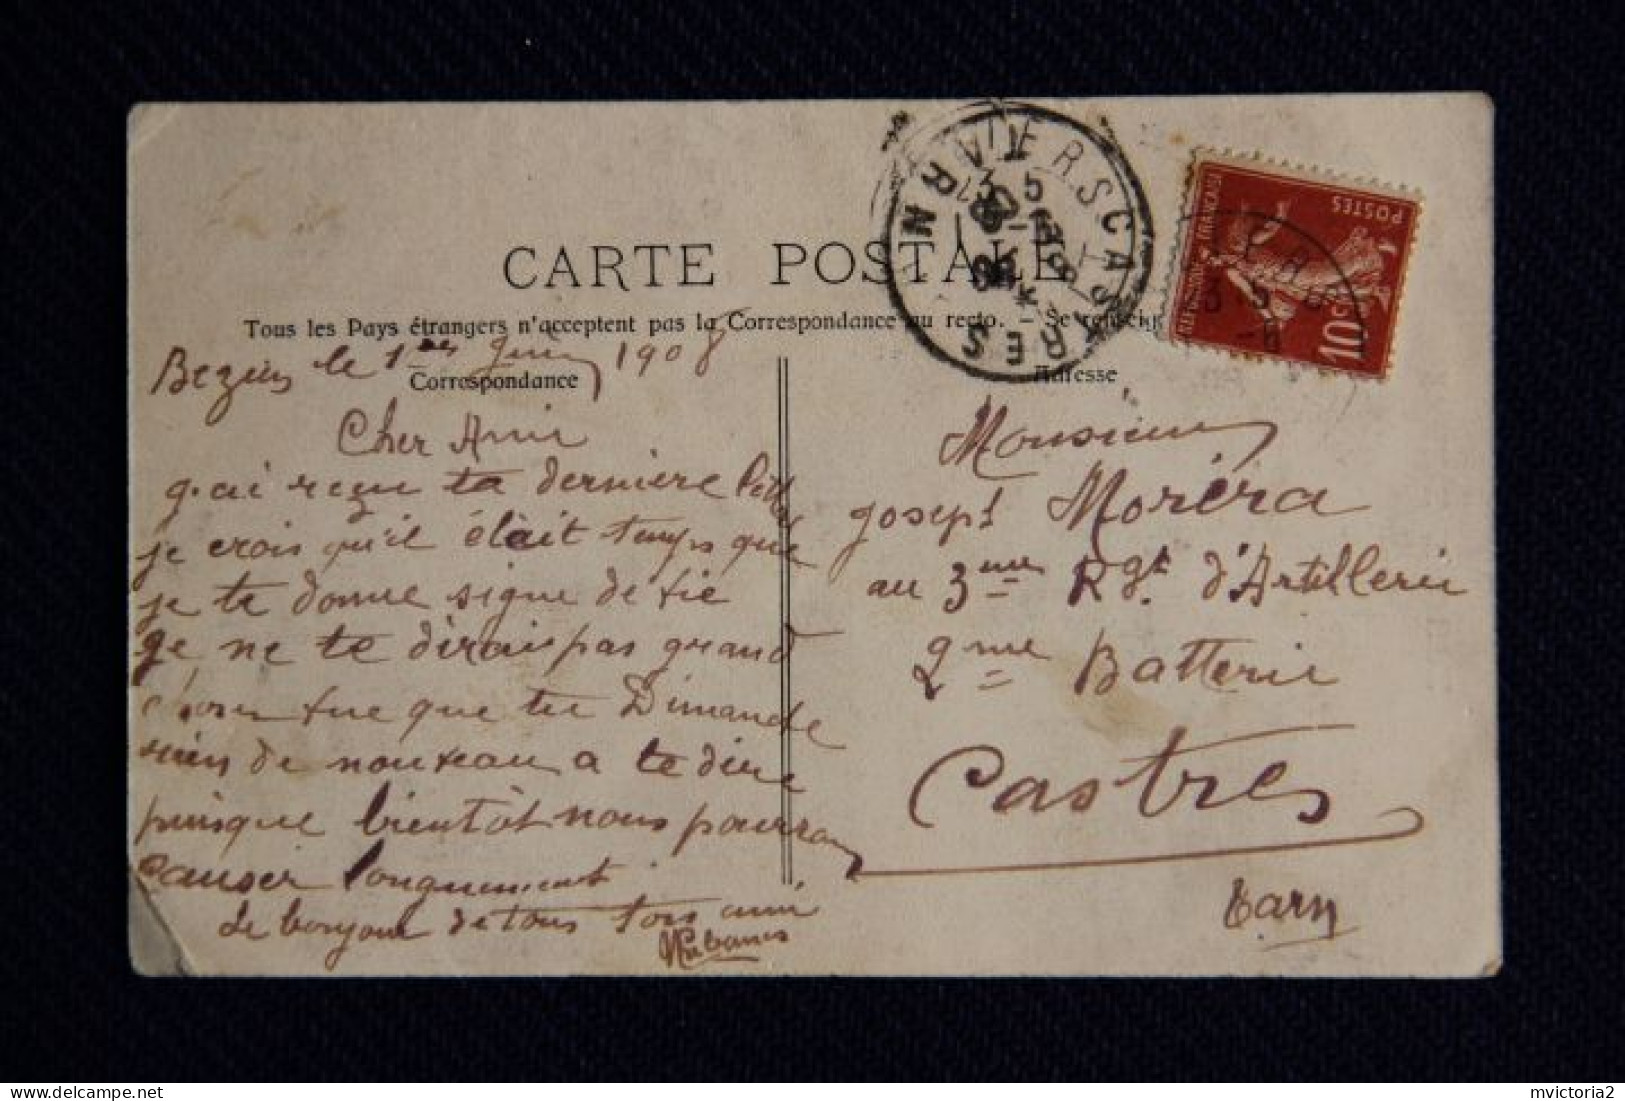 CARTE POSTALE
Tous les Pays étrangers n'acceptent pas la Correspondance au recto. - Se renseig
Correspondance
Adresse
le 1er 1908
Cher Ami
j'ai reçu ta dernière
je crois qu'il était temps que
je te donne signe de vie
je ne te dirais pas grand
chose vue que tu Dimanche
rien de nouveau a te dire
puisque bientôt nous pourron
causer longuement
Le bonjour de tous ton ami
Monsieur
Joseph Moréra
au 3me Rgt d'Artillerie
9me Batterie
Castres
Tarn
CASTRES
TARN
POSTES
10c
mvictoria2